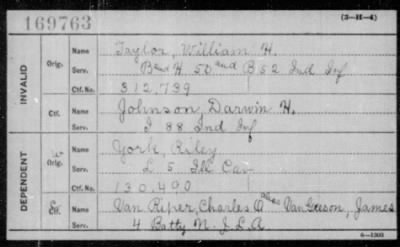 169763
(3-H-4)
INVALID
Orig.
Name Taylor, William H.
Serv. B and H 50 and B 52 Ind Inf
Ctf. No. 312,739
Ctf.
Name Johnson, Darwin H.
Serv. I 88 Ind Inf
DEPENDENT
Orig.
Name York, Riley
Serv. L 5 Ill Cav
Ctf. No. 130,490
Ctf.
Name Van Riper, Charles O alias Van Greson, James
Serv. 4 Batty N. J. L. A
6—1303